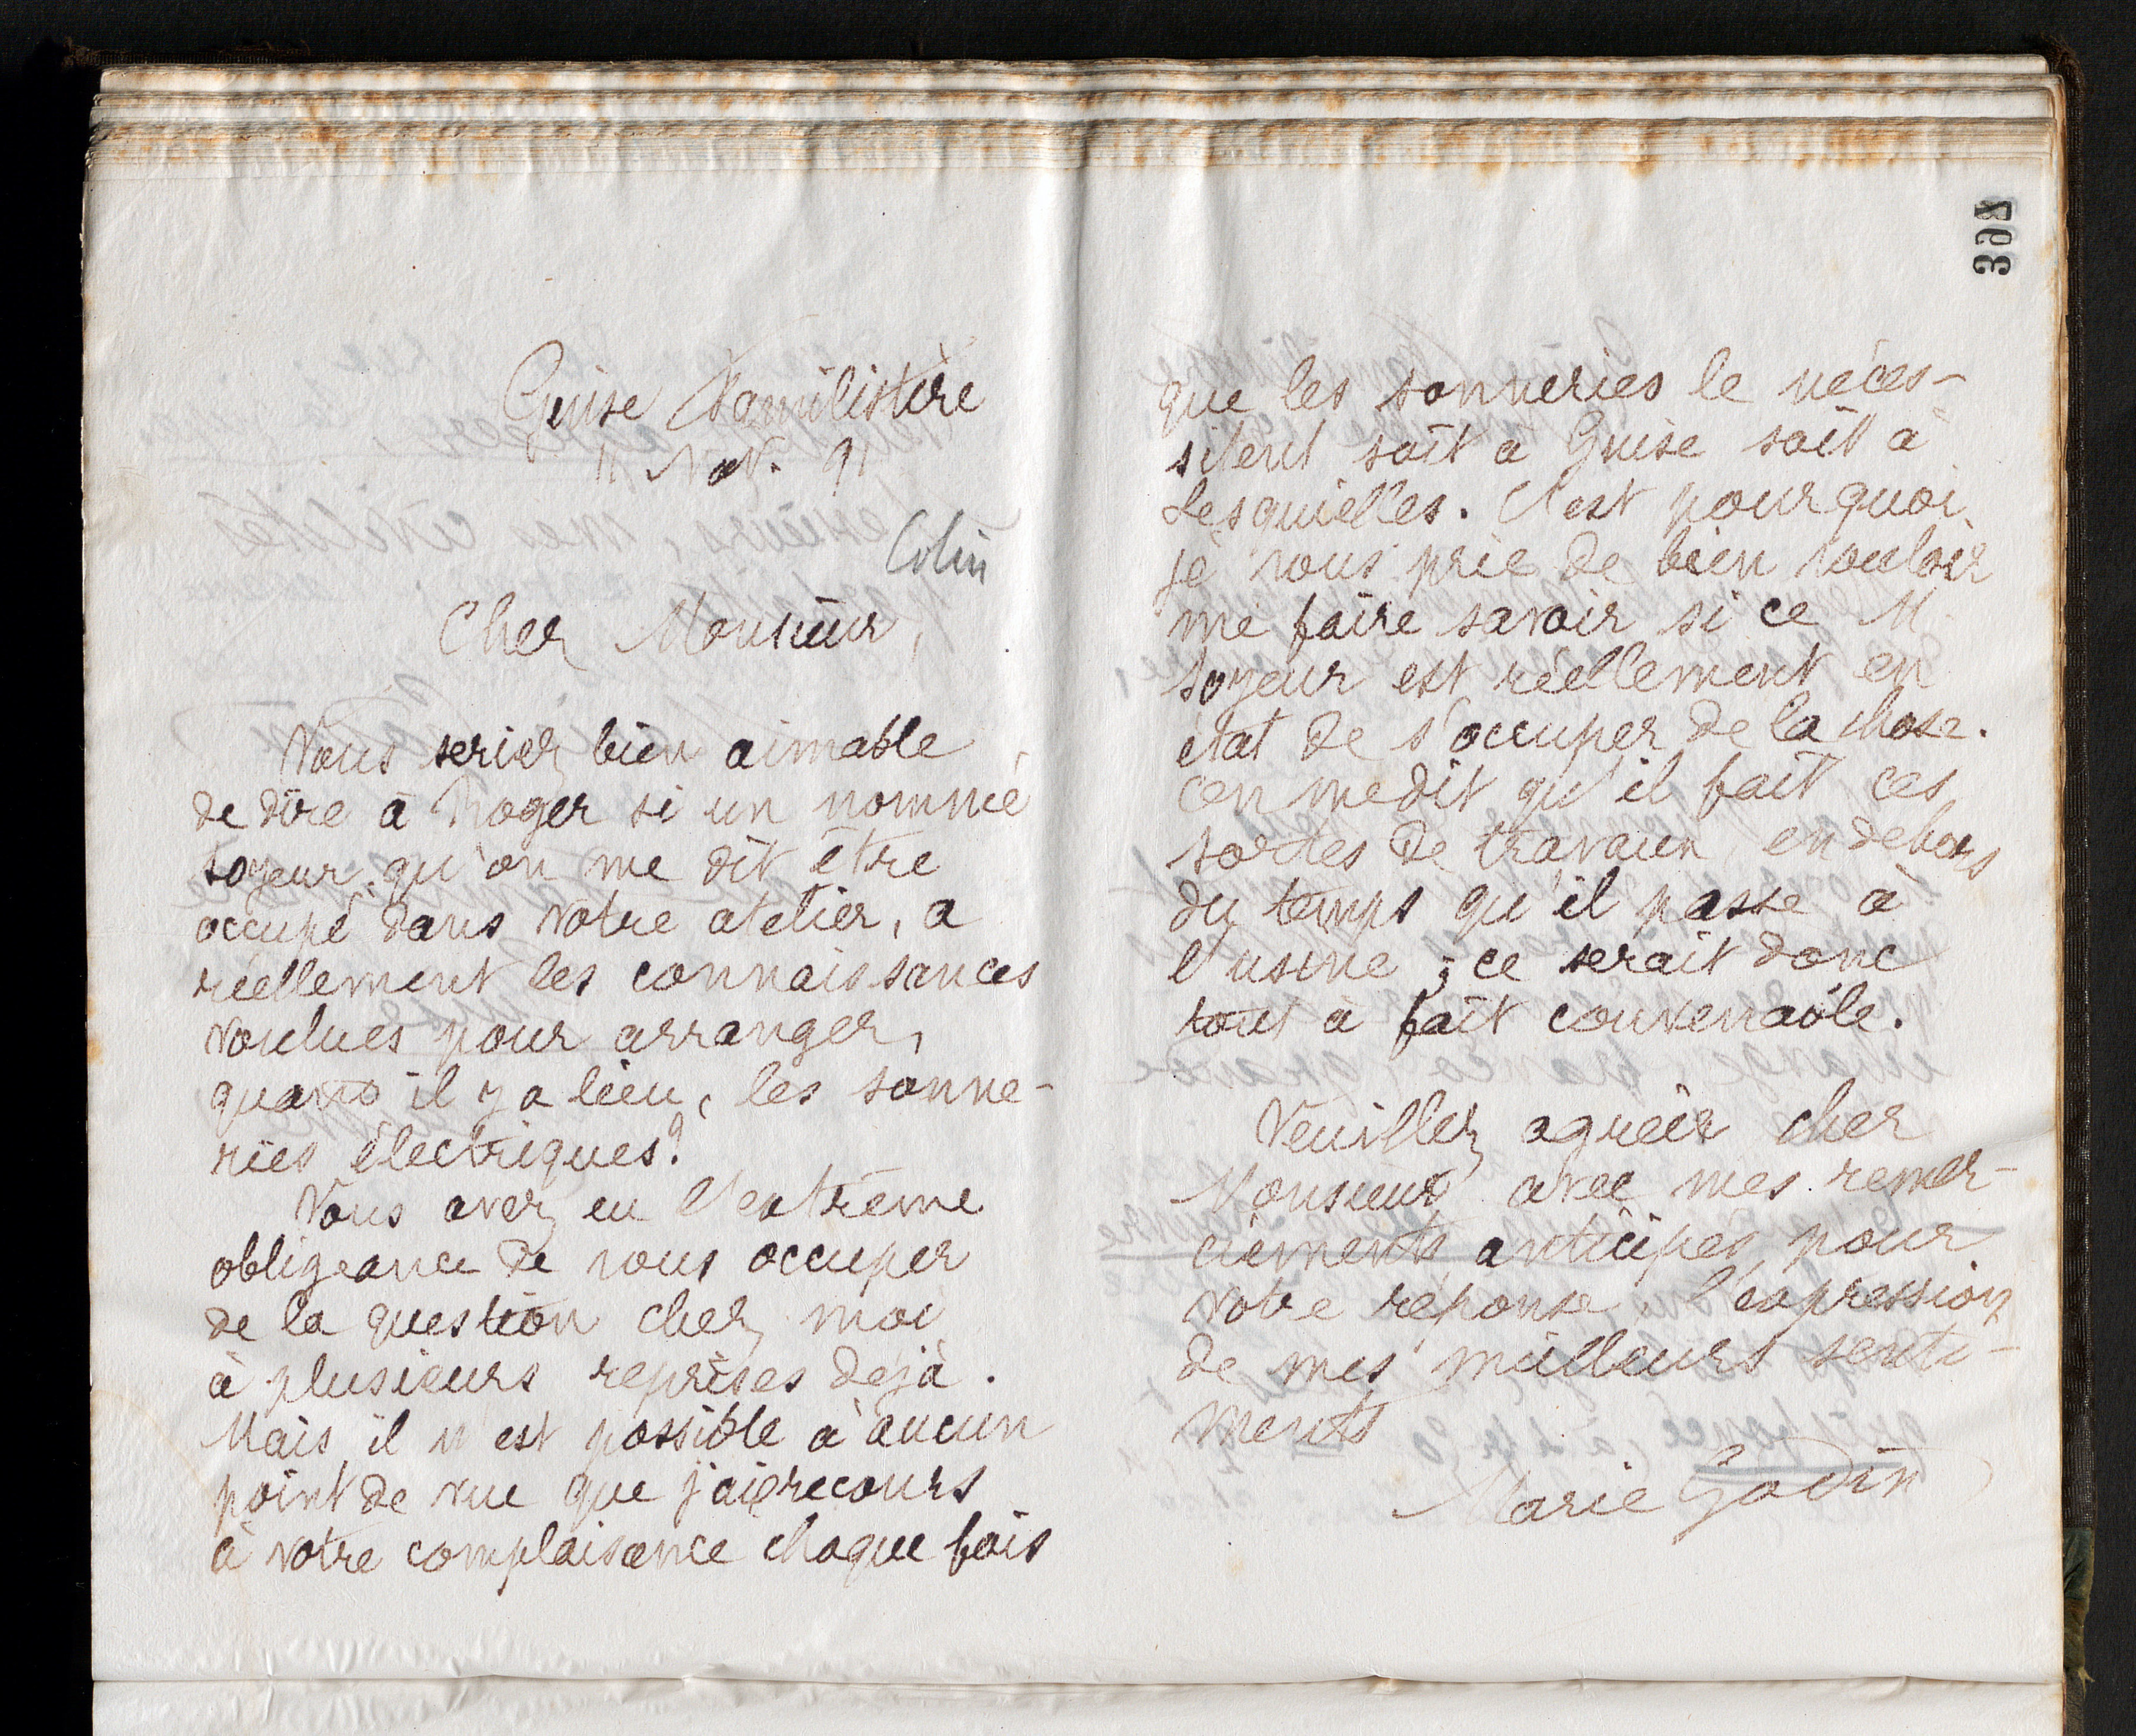 Guise Familistère
11 Nov. 91
Colin
Cher Monsieur,
Vous seriez bien aimable
de dire à Roger si un nommé
Soyeur, qu'on me dit être
occupé dans votre atelier, a
réellement les connaissances
voulues pour arranger,
quand il y a lieu, les sonne-
ries électriques?
Vous avez eu l'extrême
obligeance de vous occuper
de la question chez moi
à plusieurs reprises déjà.
Mais il n'est possible à aucun
point de vue que j'aie recours
à votre complaisance chaque fois
398
que les sonneries le néces-
sitent soit à Guise soit à
Lesquielles. C'est pourquoi
je vous prie de bien vouloir
me faire savoir si ce M.
Soyeur est réellement en
état de s'occuper de la chose.
On me dit qu'il fait ces
sortes de travaux en dehors
du temps qu'il passe à
l'usine ; ce serait donc
tout à fait convenable.
Veuillez agréer cher
Monsieur avec mes remer-
ciements anticipés pour
votre réponse, l'expression
de mes meilleurs senti-
ments
Marie Godin